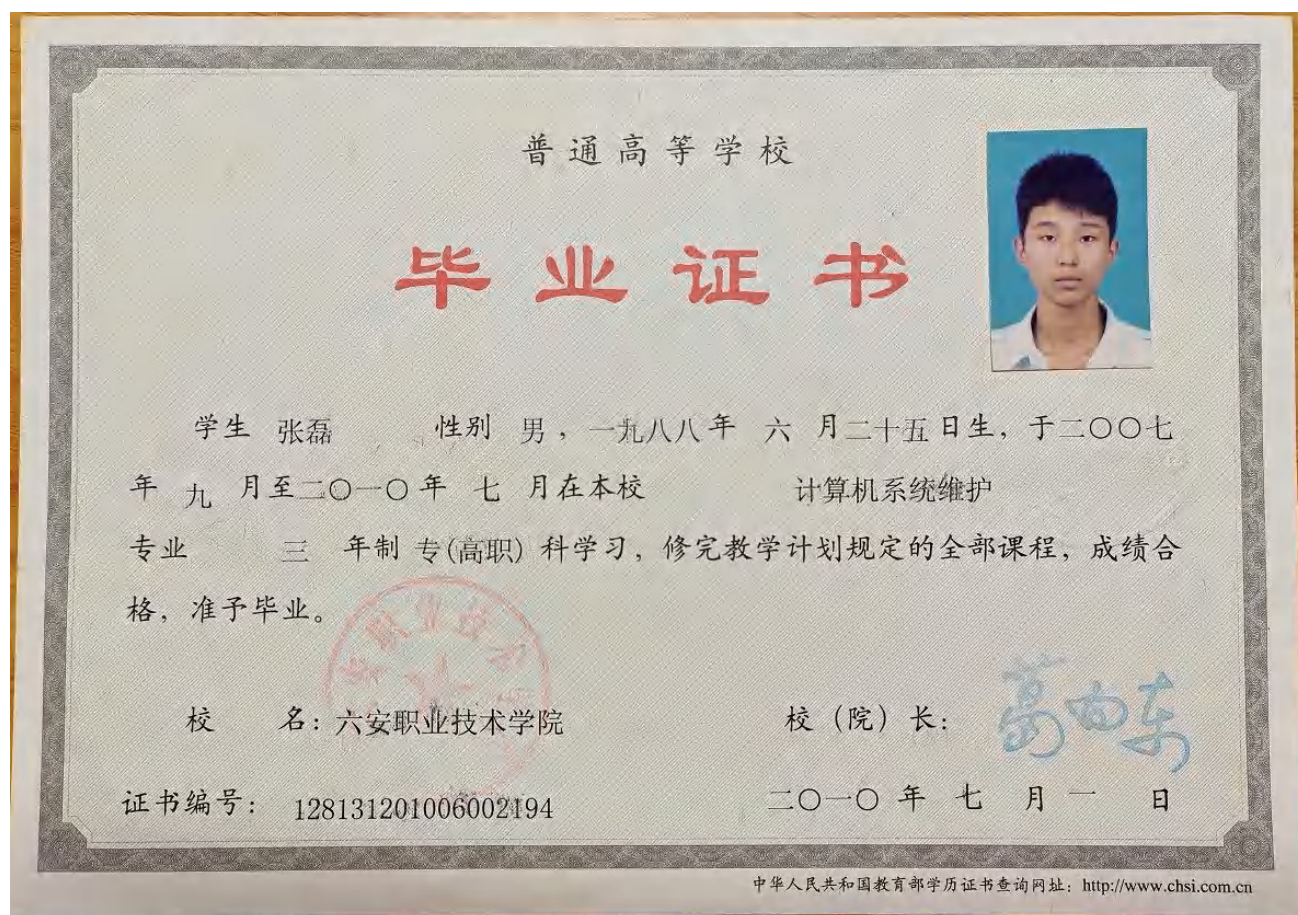 普通高等学校
毕业证书
学生 张磊 性别 男，一九八八年 六 月二十五日生，于二〇〇七
年 九 月至二〇一〇年 七 月在本校 计算机系统维护
专业 三 年制 专(高职) 科学习，修完教学计划规定的全部课程，成绩合
格，准予毕业。
校 名：六安职业技术学院 校（院）长：
证书编号： 128131201006002194 二〇一〇 年 七 月 一 日
中华人民共和国教育部学历证书查询网址：http://www.chsi.com.cn